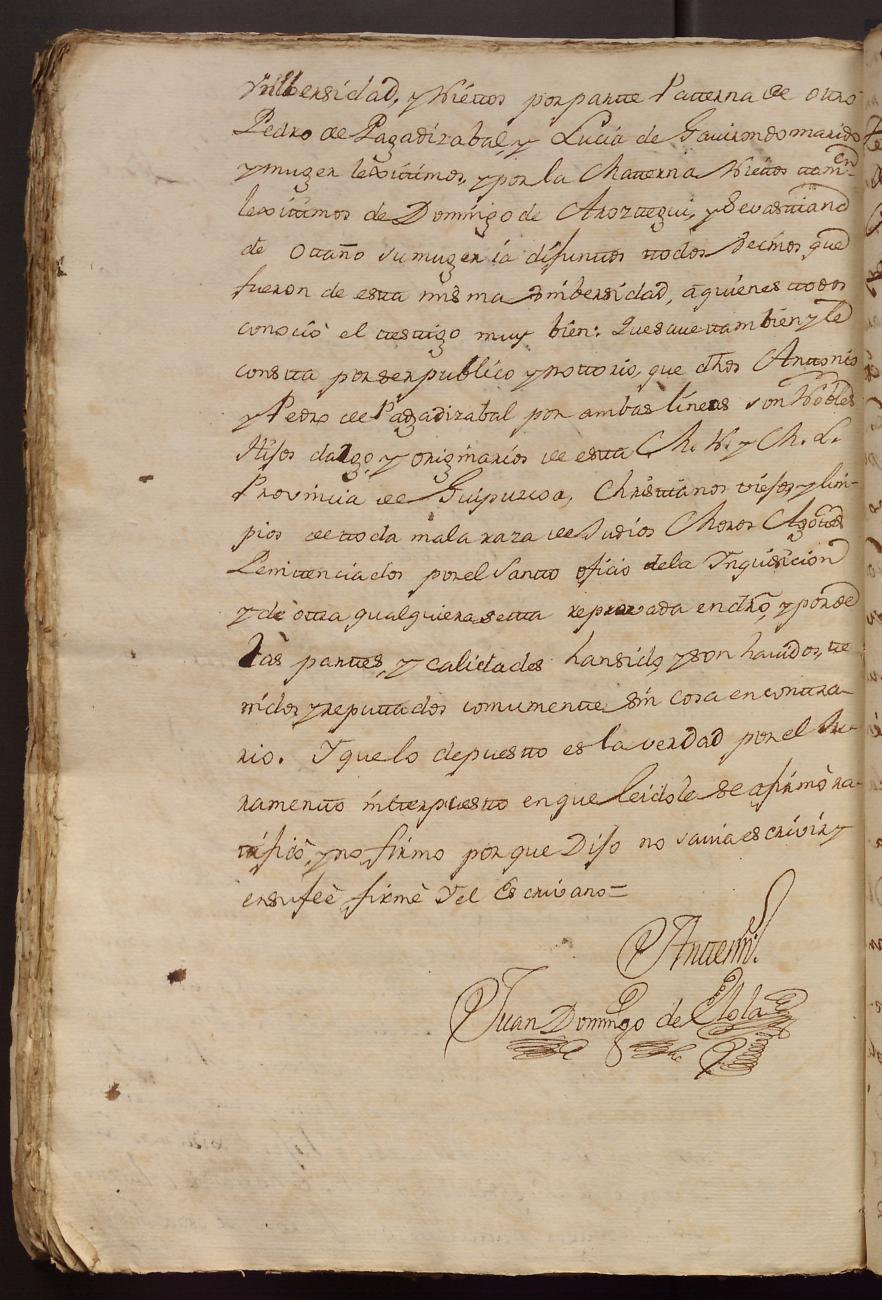 Unibersidad, y Niettos por partte Patterna de ottro
Pedro de Pagadizabal, y Lucia de Gauirondo marido
y muger lexitimos, y por la Matterna Niettos ttamen
lexitimos de Domingo de Arozttegui, y Sevasttiana
de Ottaño su muger ia difunttos ttodos Vecinos que
fueron de estta misma Unibersidad, a quienes ttodos
conocio el testtigo muy bien: Que save ttambien y le
constta por ser publico y nottorio, que dhos Anttonio
y Pedro de Pagadizabal por ambas lineas son Nobles
Hijos dalgo, y originarios de estta M. N. y M. L.
Provincia de Guipuzcoa, Christtianos viejos y lim-
pios de ttoda mala raza de Judios Moros Agottes
Penitenciados por el Santto oficio de la Inquisicion
y de ottra qualquiera setta reprovada en dro, y por de
tas parttes, y calidades han sido, y son havidos, tte
nidos y reputtados comumentte sin cosa en conttra-
rio. Y que lo depuestto es la verdad por el Ju-
ramentto intterpuestto en que leidole se afirmò ra-
ttificò, y no firmo por que Dijo no savia escrivir y
en su feè firmè Yo el Escrivano=
Anttemi.
Juan Domingo de Elola